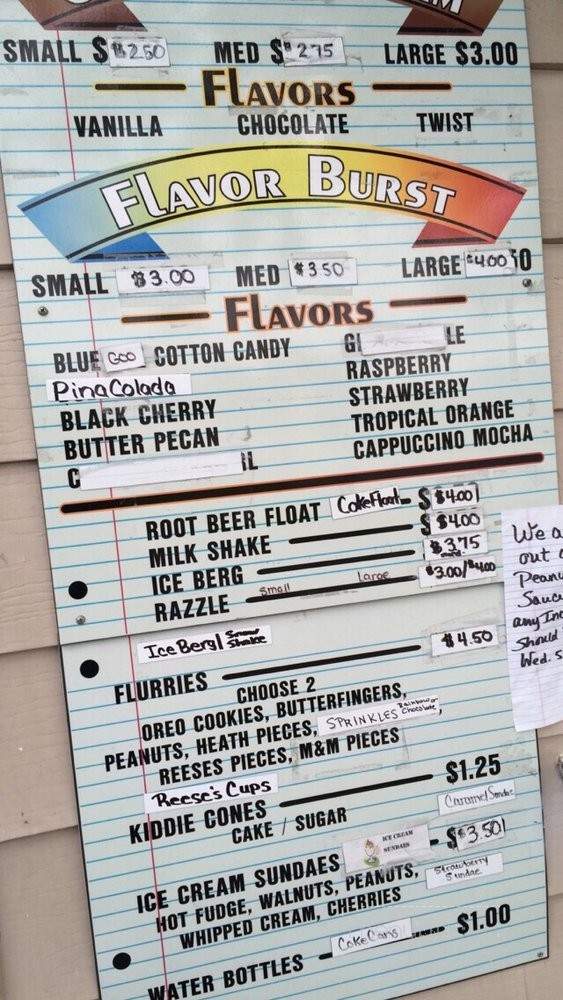 SMALL $ $2.50 MED $ 2.75 LARGE $3.00
FLAVORS
VANILLA CHOCOLATE TWIST
FLAVOR BURST
SMALL $3.00 MED $3.50 LARGE $4.00
FLAVORS
BLUE GOO COTTON CANDY
Pina Colada
BLACK CHERRY
BUTTER PECAN
C IL
G LE
RASPBERRY
STRAWBERRY
TROPICAL ORANGE
CAPPUCCINO MOCHA
ROOT BEER FLOAT Coke Float $ $4.00
MILK SHAKE $ $4.00
ICE BERG $3.75
RAZZLE small large $3.00/$4.00
Ice Berg/ Shake $4.50
FLURRIES CHOOSE 2
OREO COOKIES, BUTTERFINGERS,
PEANUTS, HEATH PIECES, SPRINKLES Rainbow or Chocolate,
REESES PIECES, M&M PIECES
Reese's Cups
KIDDIE CONES $1.25
CAKE / SUGAR
Caramel Sundae
ICE CREAM SUNDAES ICE CREAM SUNDAES $ $3.50
HOT FUDGE, WALNUTS, PEANUTS, Strawberry Sundae
WHIPPED CREAM, CHERRIES
Coke Cans
WATER BOTTLES $1.00
We a
out
Peanu
Sauc
any In
Should
Wed. S